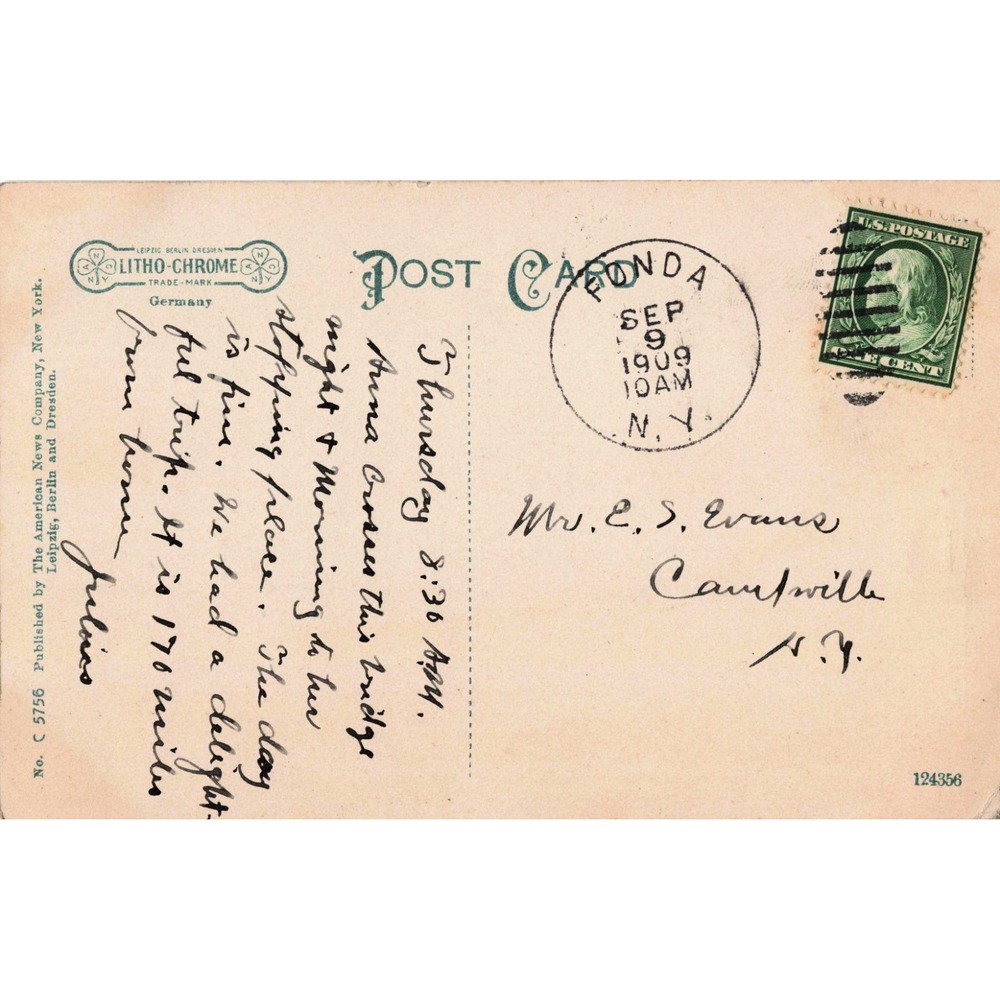 POST CARD
LEIPZIG BERLIN DRESDEN
LITHO-CHROME
TRADE-MARK
Germany
FONDA
SEP
9
1909
10 AM
N. Y.
U.S. POSTAGE
ONE CENT
Thursday 8:30 A.M.
Anna Crosses this bridge
night & Morning to her
stopping place. The day
is fine. We had a delight-
ful trip. It is 170 miles
from home
Mr. E. S. Evans
Campville
N. Y.
124356
No. C 5756 Published by The American News Company, New York.
Leipzig, Berlin and Dresden.